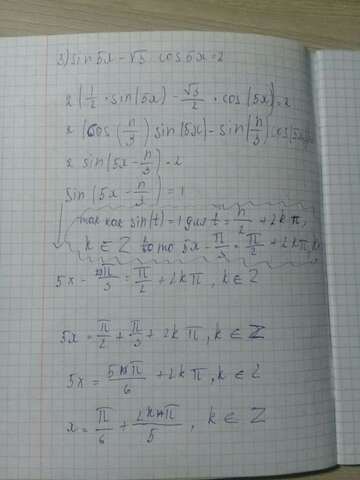 3) sin 5x - √3 cos 5x = 2
2 (1/2 · sin(5x) - √3/2 · cos(5x) = 2
2 (cos (π/3) sin(5x) - sin(π/3) cos(5x)
2 sin (5x - π/3) = 2
sin (5x - π/3) = 1
так как sin(t) = 1 для t = π/2 + 2kπ,
k ∈ Z то 5x - π/3 = π/2 + 2kπ, k
5x - π/3 = π/2 + 2kπ, k ∈ Z
5x = π/2 + π/3 + 2kπ, k ∈ Z
5x = 5π/6 + 2kπ, k ∈ Z
x = π/6 + 2kπ/5, k ∈ Z